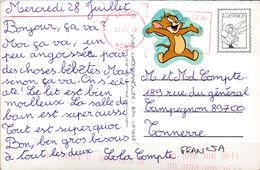 Mercredi 28 Juillet
Bonjour, ça va?
Moi ça va, un
peu angoissée pour
des choses bébêtes. Mais
sinon ça va. Ça s'est
Le lit est bien
moelleux. La salle de
bain est super aussi.
Tout est superquoi!
Bon, ben gros bisou
à tout les deux.
Lola Compte
M et Md Compte
189 rue du général
Campegnon 89700
Tonnerre
FRANCJA